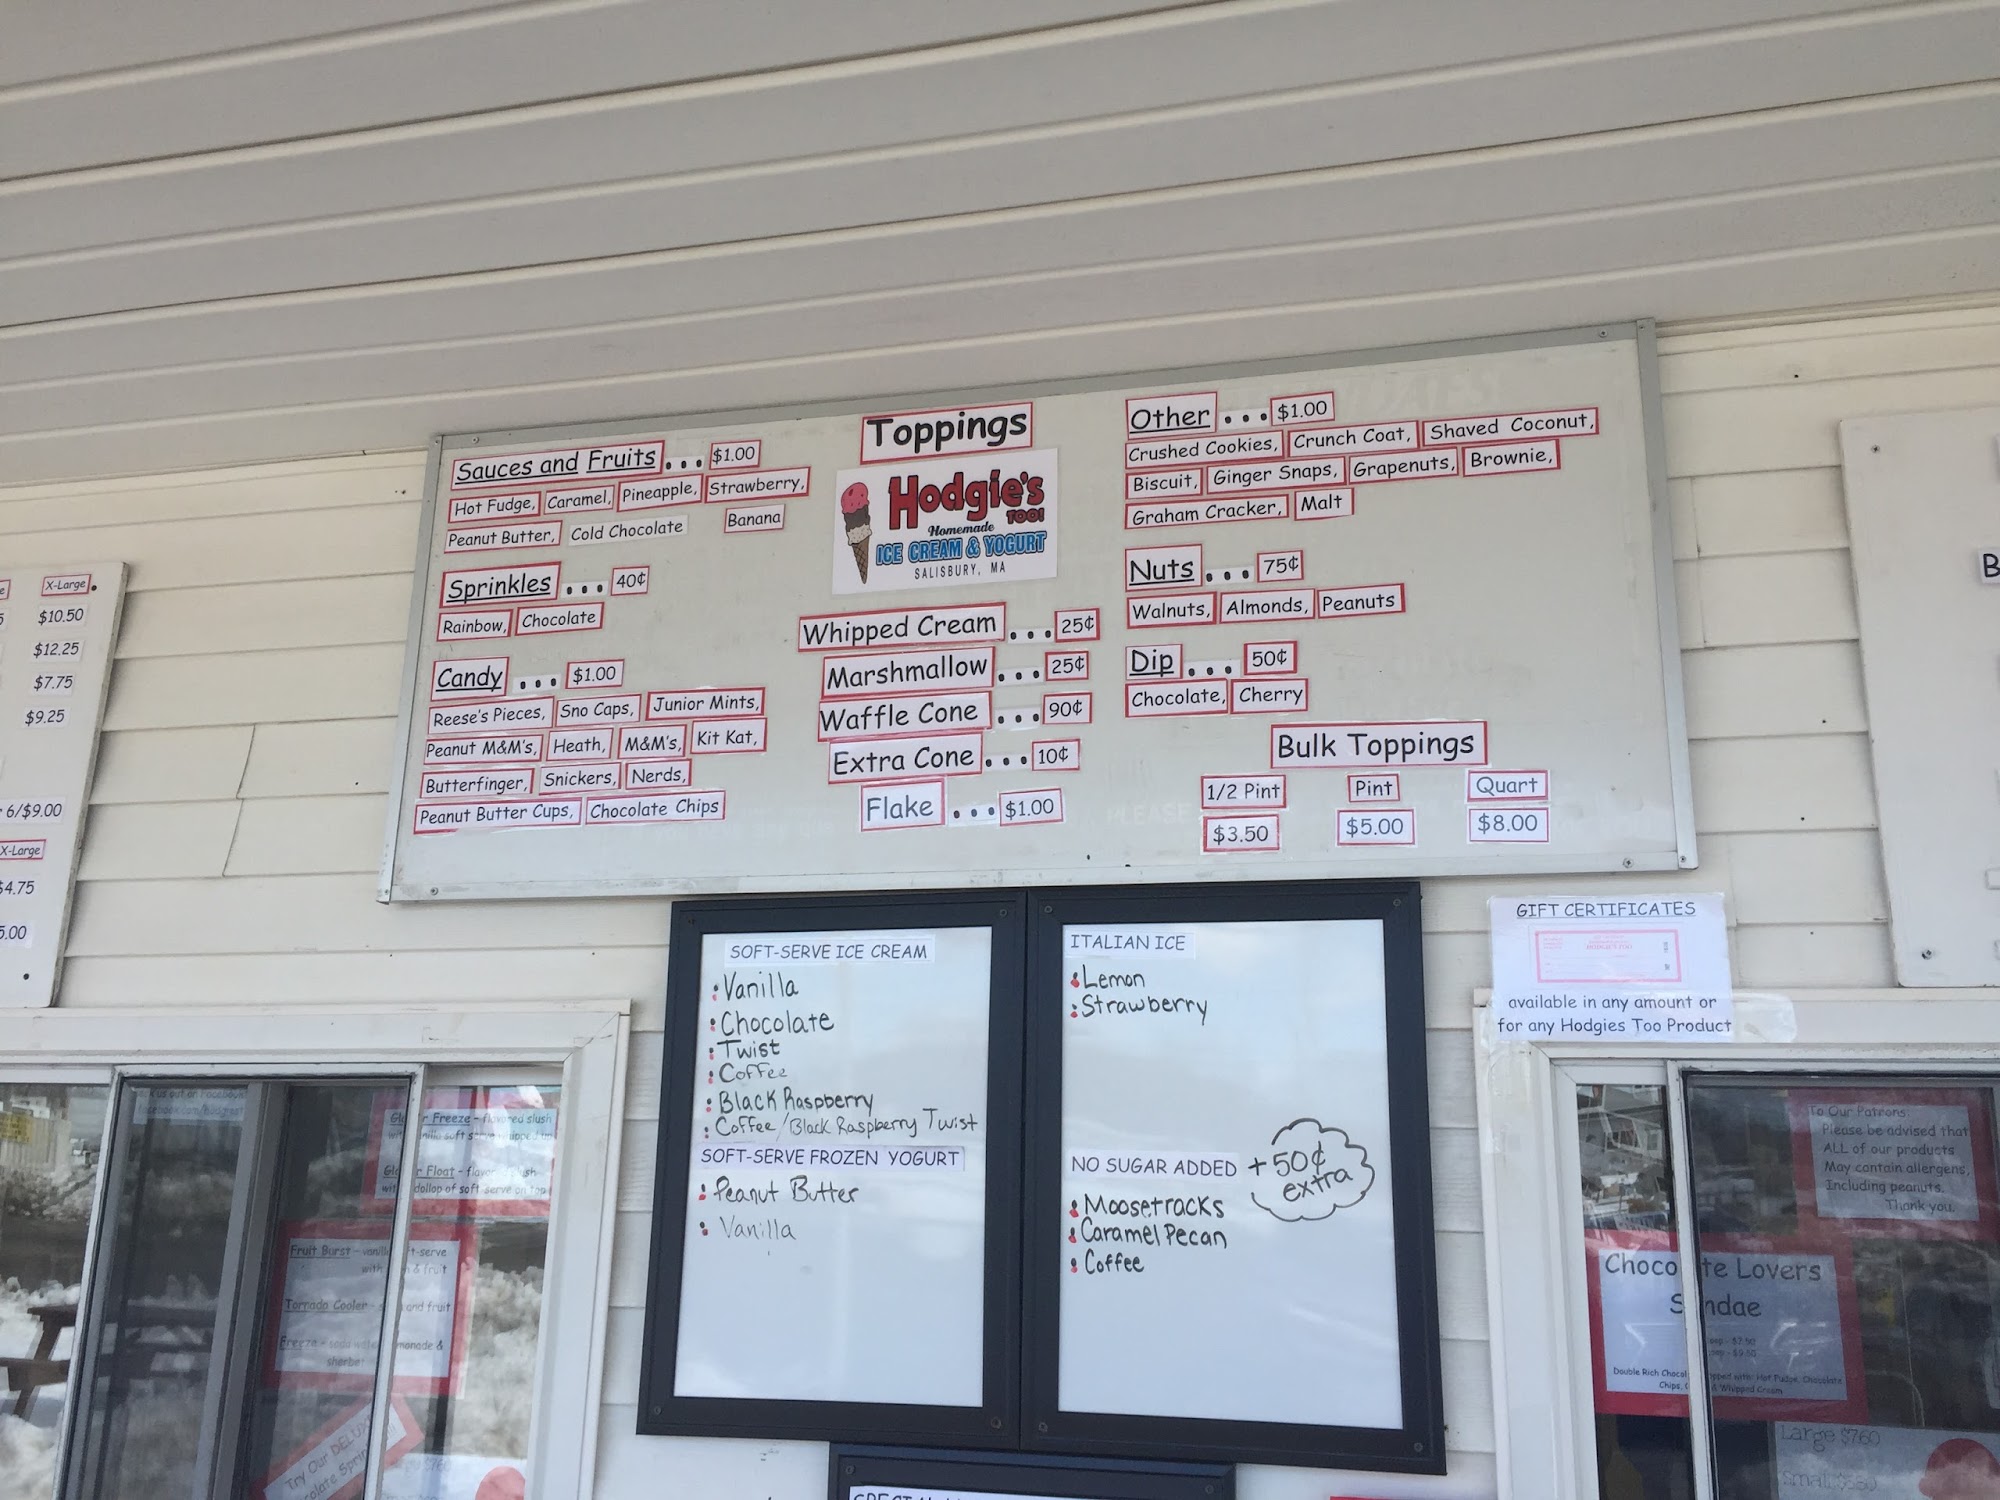 X-Large
$10.50
$12.25
$7.75
$9.25
6/$9.00
X-Large
$4.75
5.00
Sauces and Fruits ... $1.00
Hot Fudge, Caramel, Pineapple, Strawberry,
Peanut Butter, Cold Chocolate Banana
Sprinkles ... 40¢
Rainbow, Chocolate
Candy ... $1.00
Reese's Pieces, Sno Caps, Junior Mints,
Peanut M&M's, Heath, M&M's, Kit Kat,
Butterfinger, Snickers, Nerds,
Peanut Butter Cups, Chocolate Chips
Toppings
Hodgie's
TOO!
Homemade
ICE CREAM & YOGURT
SALISBURY, MA
Whipped Cream ... 25¢
Marshmallow ... 25¢
Waffle Cone ... 90¢
Extra Cone ... 10¢
Flake ... $1.00
Other ... $1.00
Crushed Cookies, Crunch Coat, Shaved Coconut,
Biscuit, Ginger Snaps, Grapenuts, Brownie,
Graham Cracker, Malt
Nuts ... 75¢
Walnuts, Almonds, Peanuts
Dip ... 50¢
Chocolate, Cherry
Bulk Toppings
1/2 Pint Pint Quart
$3.50 $5.00 $8.00
SOFT-SERVE ICE CREAM
Vanilla
Chocolate
Twist
Coffee
Black Raspberry
Coffee/Black Raspberry Twist
SOFT-SERVE FROZEN YOGURT
Peanut Butter
Vanilla
ITALIAN ICE
Lemon
Strawberry
NO SUGAR ADDED +50¢ extra
Moosetracks
Caramel Pecan
Coffee
GIFT CERTIFICATES
HODGIE'S TOO
available in any amount or
for any Hodgies Too Product
B
us out on Facebook
Freeze - flavored slush
Float - 
dollop of soft-serve on top
Fruit Burst - 
& fruit
Tornado Cooler - and fruit
Freeze - 
sherbet
Try Our
To Our Patrons:
Please be advised that
ALL of our products
May contain allergens,
Including peanuts.
Thank you.
Chocolate Lovers
Sundae
Double Rich topped with: Hot Fudge, Chocolate
Chips, & Whipped Cream
Large $7.60
Small